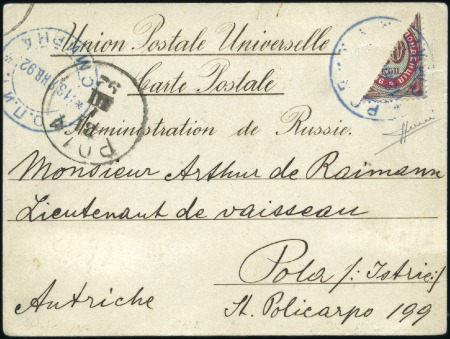 Union Postale Universelle
Carte Postale
Administration de Russie.
Monsieur Arthur de Raimann
Lieutenant de vaisseau
Pola /: Istrie :/
Autriche St. Policarpo 199
POLA
92